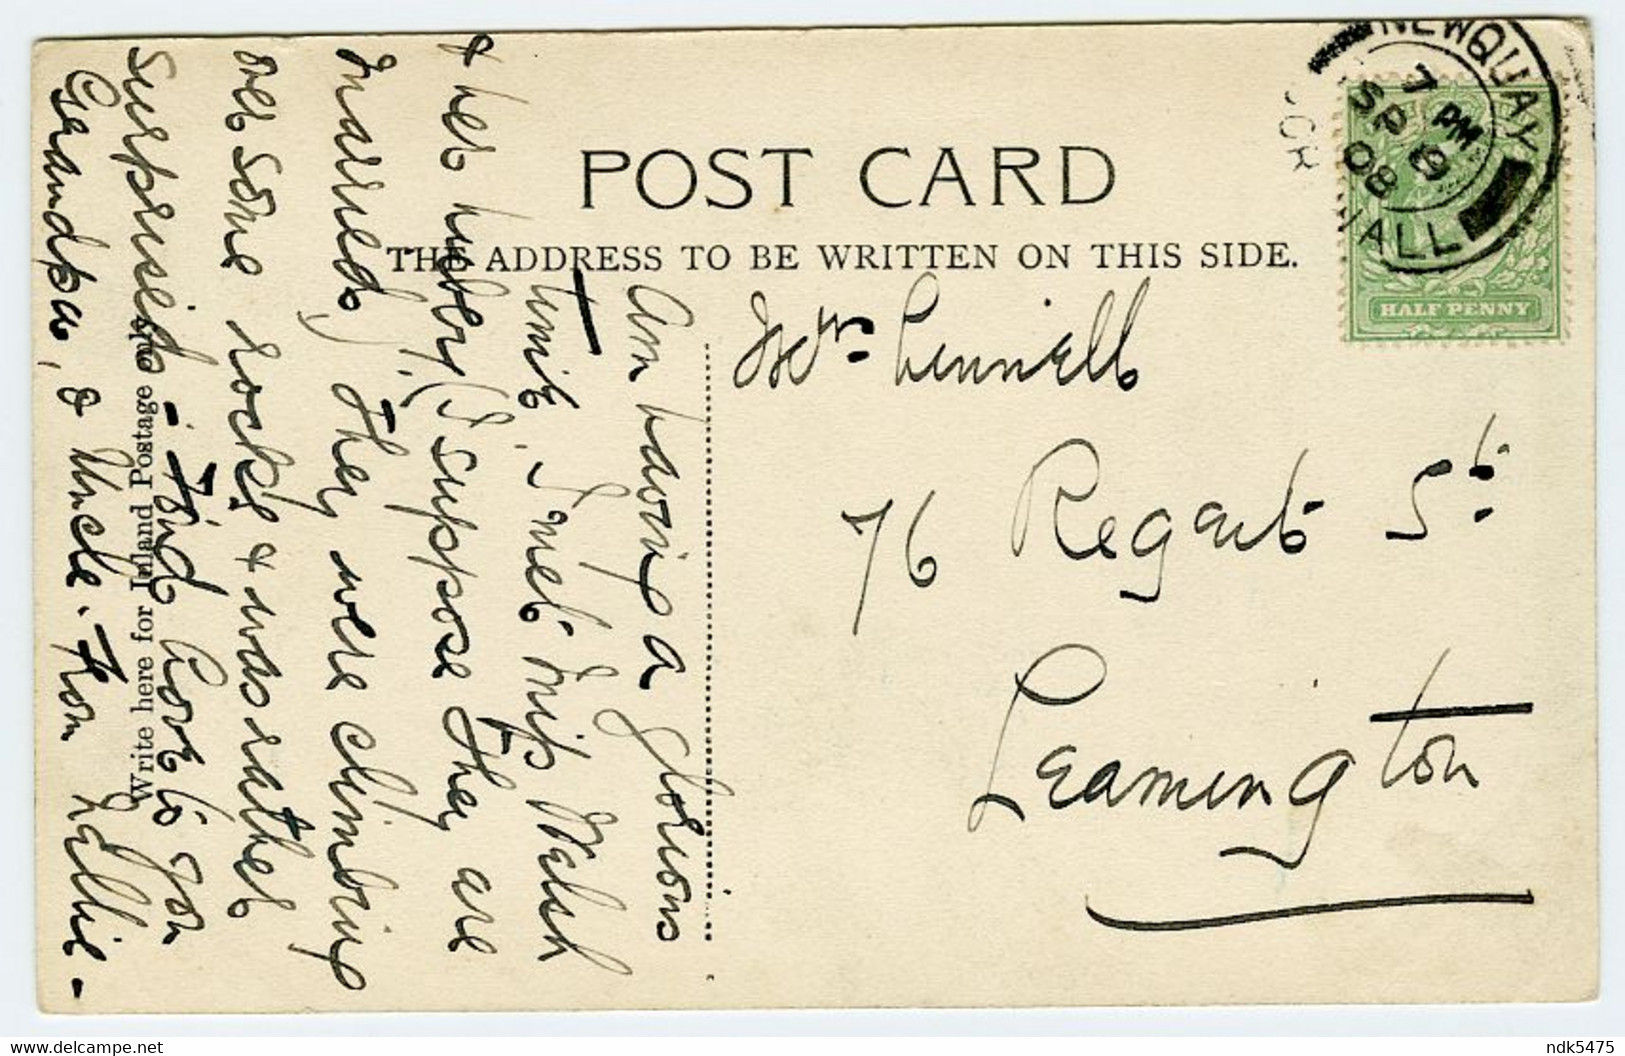 POST CARD
THE ADDRESS TO BE WRITTEN ON THIS SIDE.
Write here for Inland Postage only
NEWQUAY
7 PM
SP 9
08
CORNWALL
HALF PENNY
Mrs. Linnell
76 Regent St.
Leamington
Am having a glorious
time. I met Miss Walsh
& her hubby (I suppose they are
married)! They were climbing
over some rocks & was rather
surprised - Fond love to you
Grandpa, & Uncle. From Nellie -
ndk5475